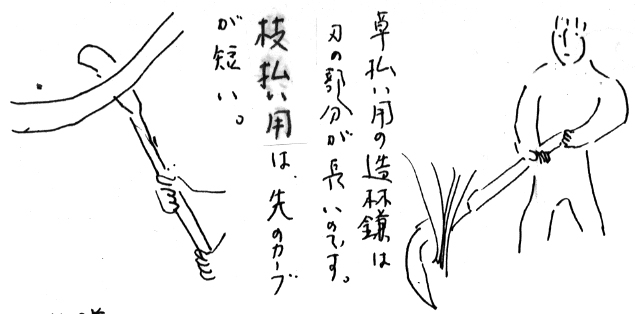 草払い用の造林鎌は
刃の部分が長いのです。
枝払い用は、先のカーブ
が短い。